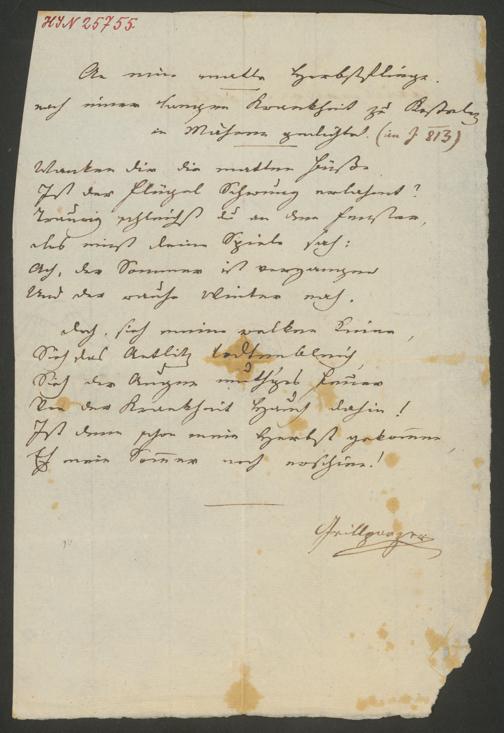 HIN 25755.
An eine matte Herbstfliege.
nach einer langen Krankheit zu
in Mähren gedichtet. (im J 813)
Wanken dir die matten Füße
Ist der Flügel Schwung erlahmt?
Traurig schleichst du an den Fenster,
das einst deine Spiele sah:
Ach, der Sommer ist vergangen
Und der rauhe Winter nah.
doch, sieh meine welken Kniee,
Sieh das Antlitz todtenbleich,
Sieh der Augen muth'ges Feuer
Von der Krankheit Hauch dahin!
Ist denn schon mein Herbst gekommen,
Eh mein Sommer noch erschien!
Grillparzer